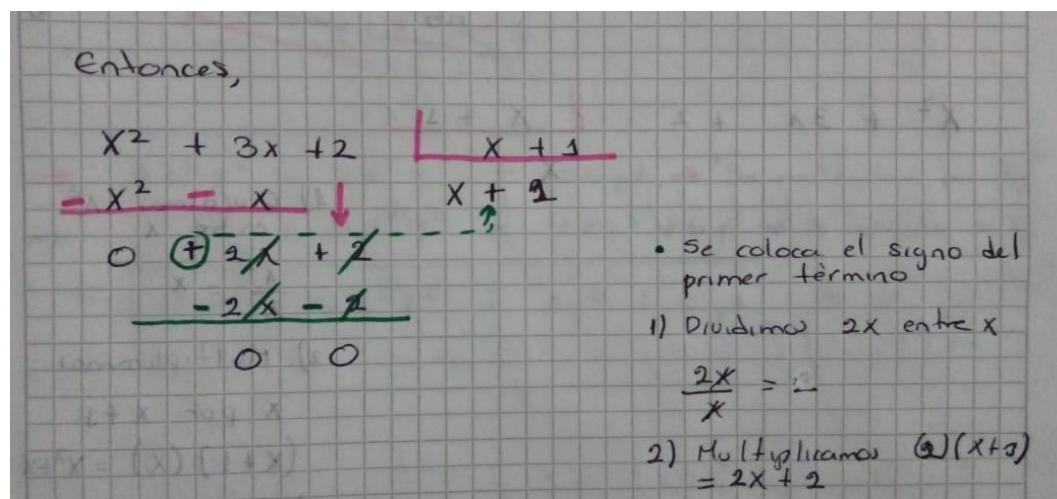 Entonces,
x² + 3x + 2 x + 1
- x² - x x + 2
0 + 2x + 2
- 2x - 2
0 0
• Se coloca el signo del
primer tèrmino
1) Dividimos 2x entre x
2x/x =
2) Multiplicamos (2)(x+1)
= 2x + 2